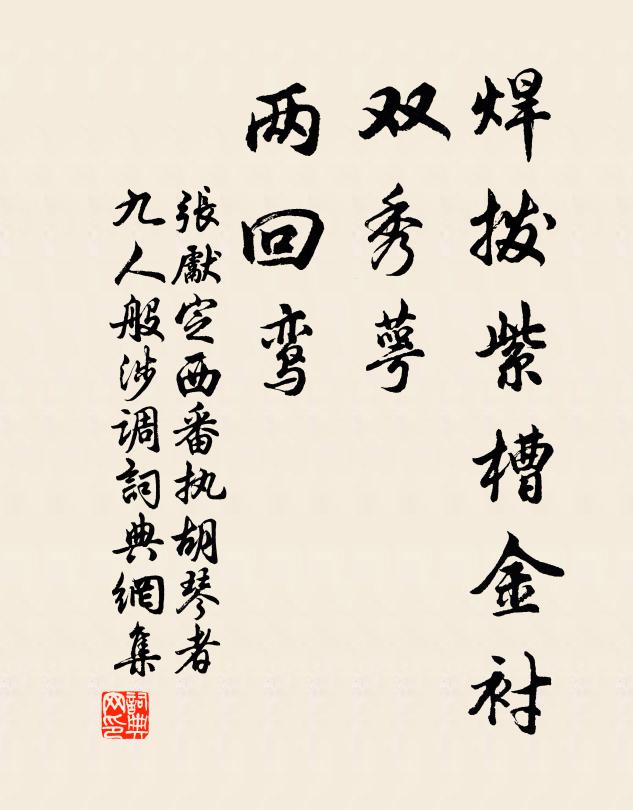 焊拨紫槽金衬
双秀萼
两回鸾
張獻定西番执胡琴者
九人般涉调詞典網集
詞典网印